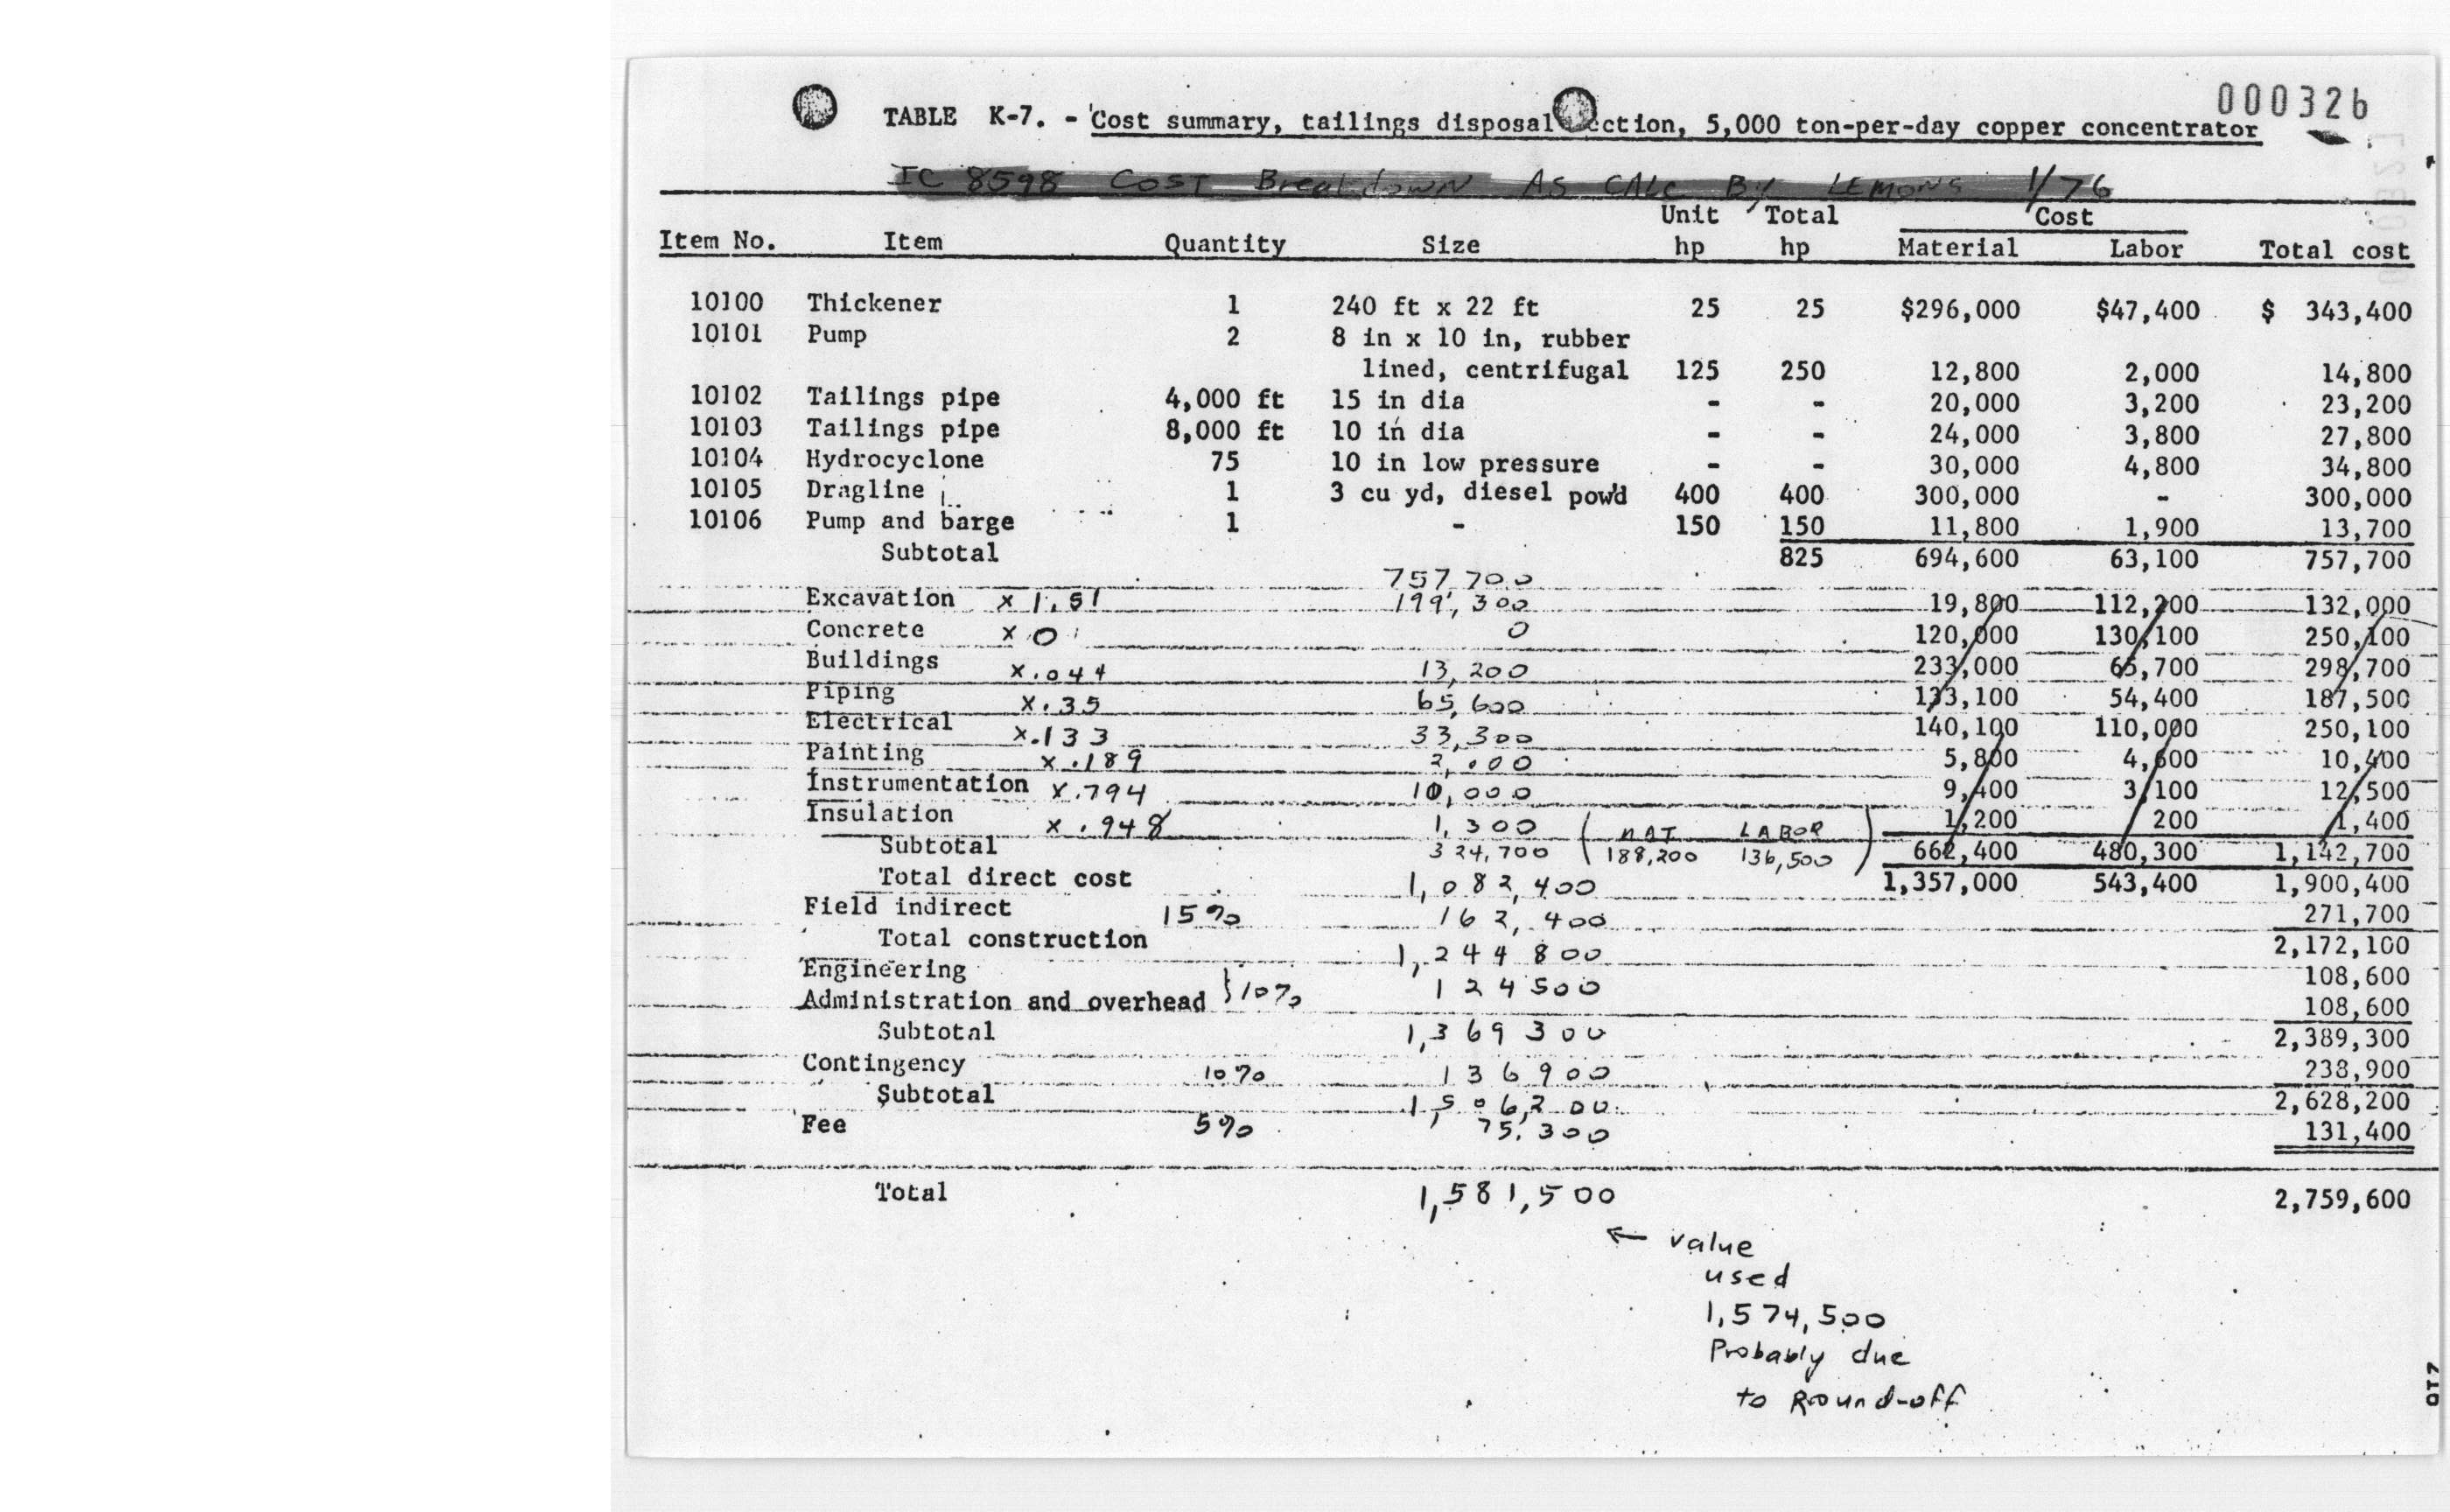 000326
TABLE K-7. - Cost summary, tailings disposal ction, 5,000 ton-per-day copper concentrator
IC 8598 COST Breakdown AS CALC BY LEMONS 1/76
Unit Total Cost
Item No. Item Quantity Size hp hp Material Labor Total cost
10100 Thickener 1 240 ft x 22 ft 25 25 $296,000 $47,400 $ 343,400
10101 Pump 2 8 in x 10 in, rubber
lined, centrifugal 125 250 12,800 2,000 14,800
10102 Tailings pipe 4,000 ft 15 in dia - - 20,000 3,200 23,200
10103 Tailings pipe 8,000 ft 10 in dia - - 24,000 3,800 27,800
10104 Hydrocyclone 75 10 in low pressure - - 30,000 4,800 34,800
10105 Dragline 1 3 cu yd, diesel pow'd 400 400 300,000 - 300,000
10106 Pump and barge 1 - 150 150 11,800 1,900 13,700
Subtotal 825 694,600 63,100 757,700
757,700
Excavation x 1.51 199,300 19,800 112,200 132,000
Concrete x 0 0 120,000 130,100 250,100
Buildings x .044 13,200 233,000 65,700 298,700
Piping x .35 65,600 133,100 54,400 187,500
Electrical x .133 33,300 140,100 110,000 250,100
Painting x .189 2,000 5,800 4,600 10,400
Instrumentation x .794 10,000 9,400 3,100 12,500
Insulation x .948 1,300 ( MAT LABOR ) 1,200 200 1,400
Subtotal 324,700 188,200 136,500 662,400 480,300 1,142,700
Total direct cost 1,082,400 1,357,000 543,400 1,900,400
Field indirect 15% 162,400 271,700
Total construction 1,244 800 2,172,100
Engineering 108,600
Administration and overhead } 10% 124 500 108,600
Subtotal 1,369 300 2,389,300
Contingency 10% 136 900 238,900
Subtotal 1,506,200 2,628,200
Fee 5% 75,300 131,400
Total 1,581,500 2,759,600
← value
used
1,574,500
Probably due
to Round-off